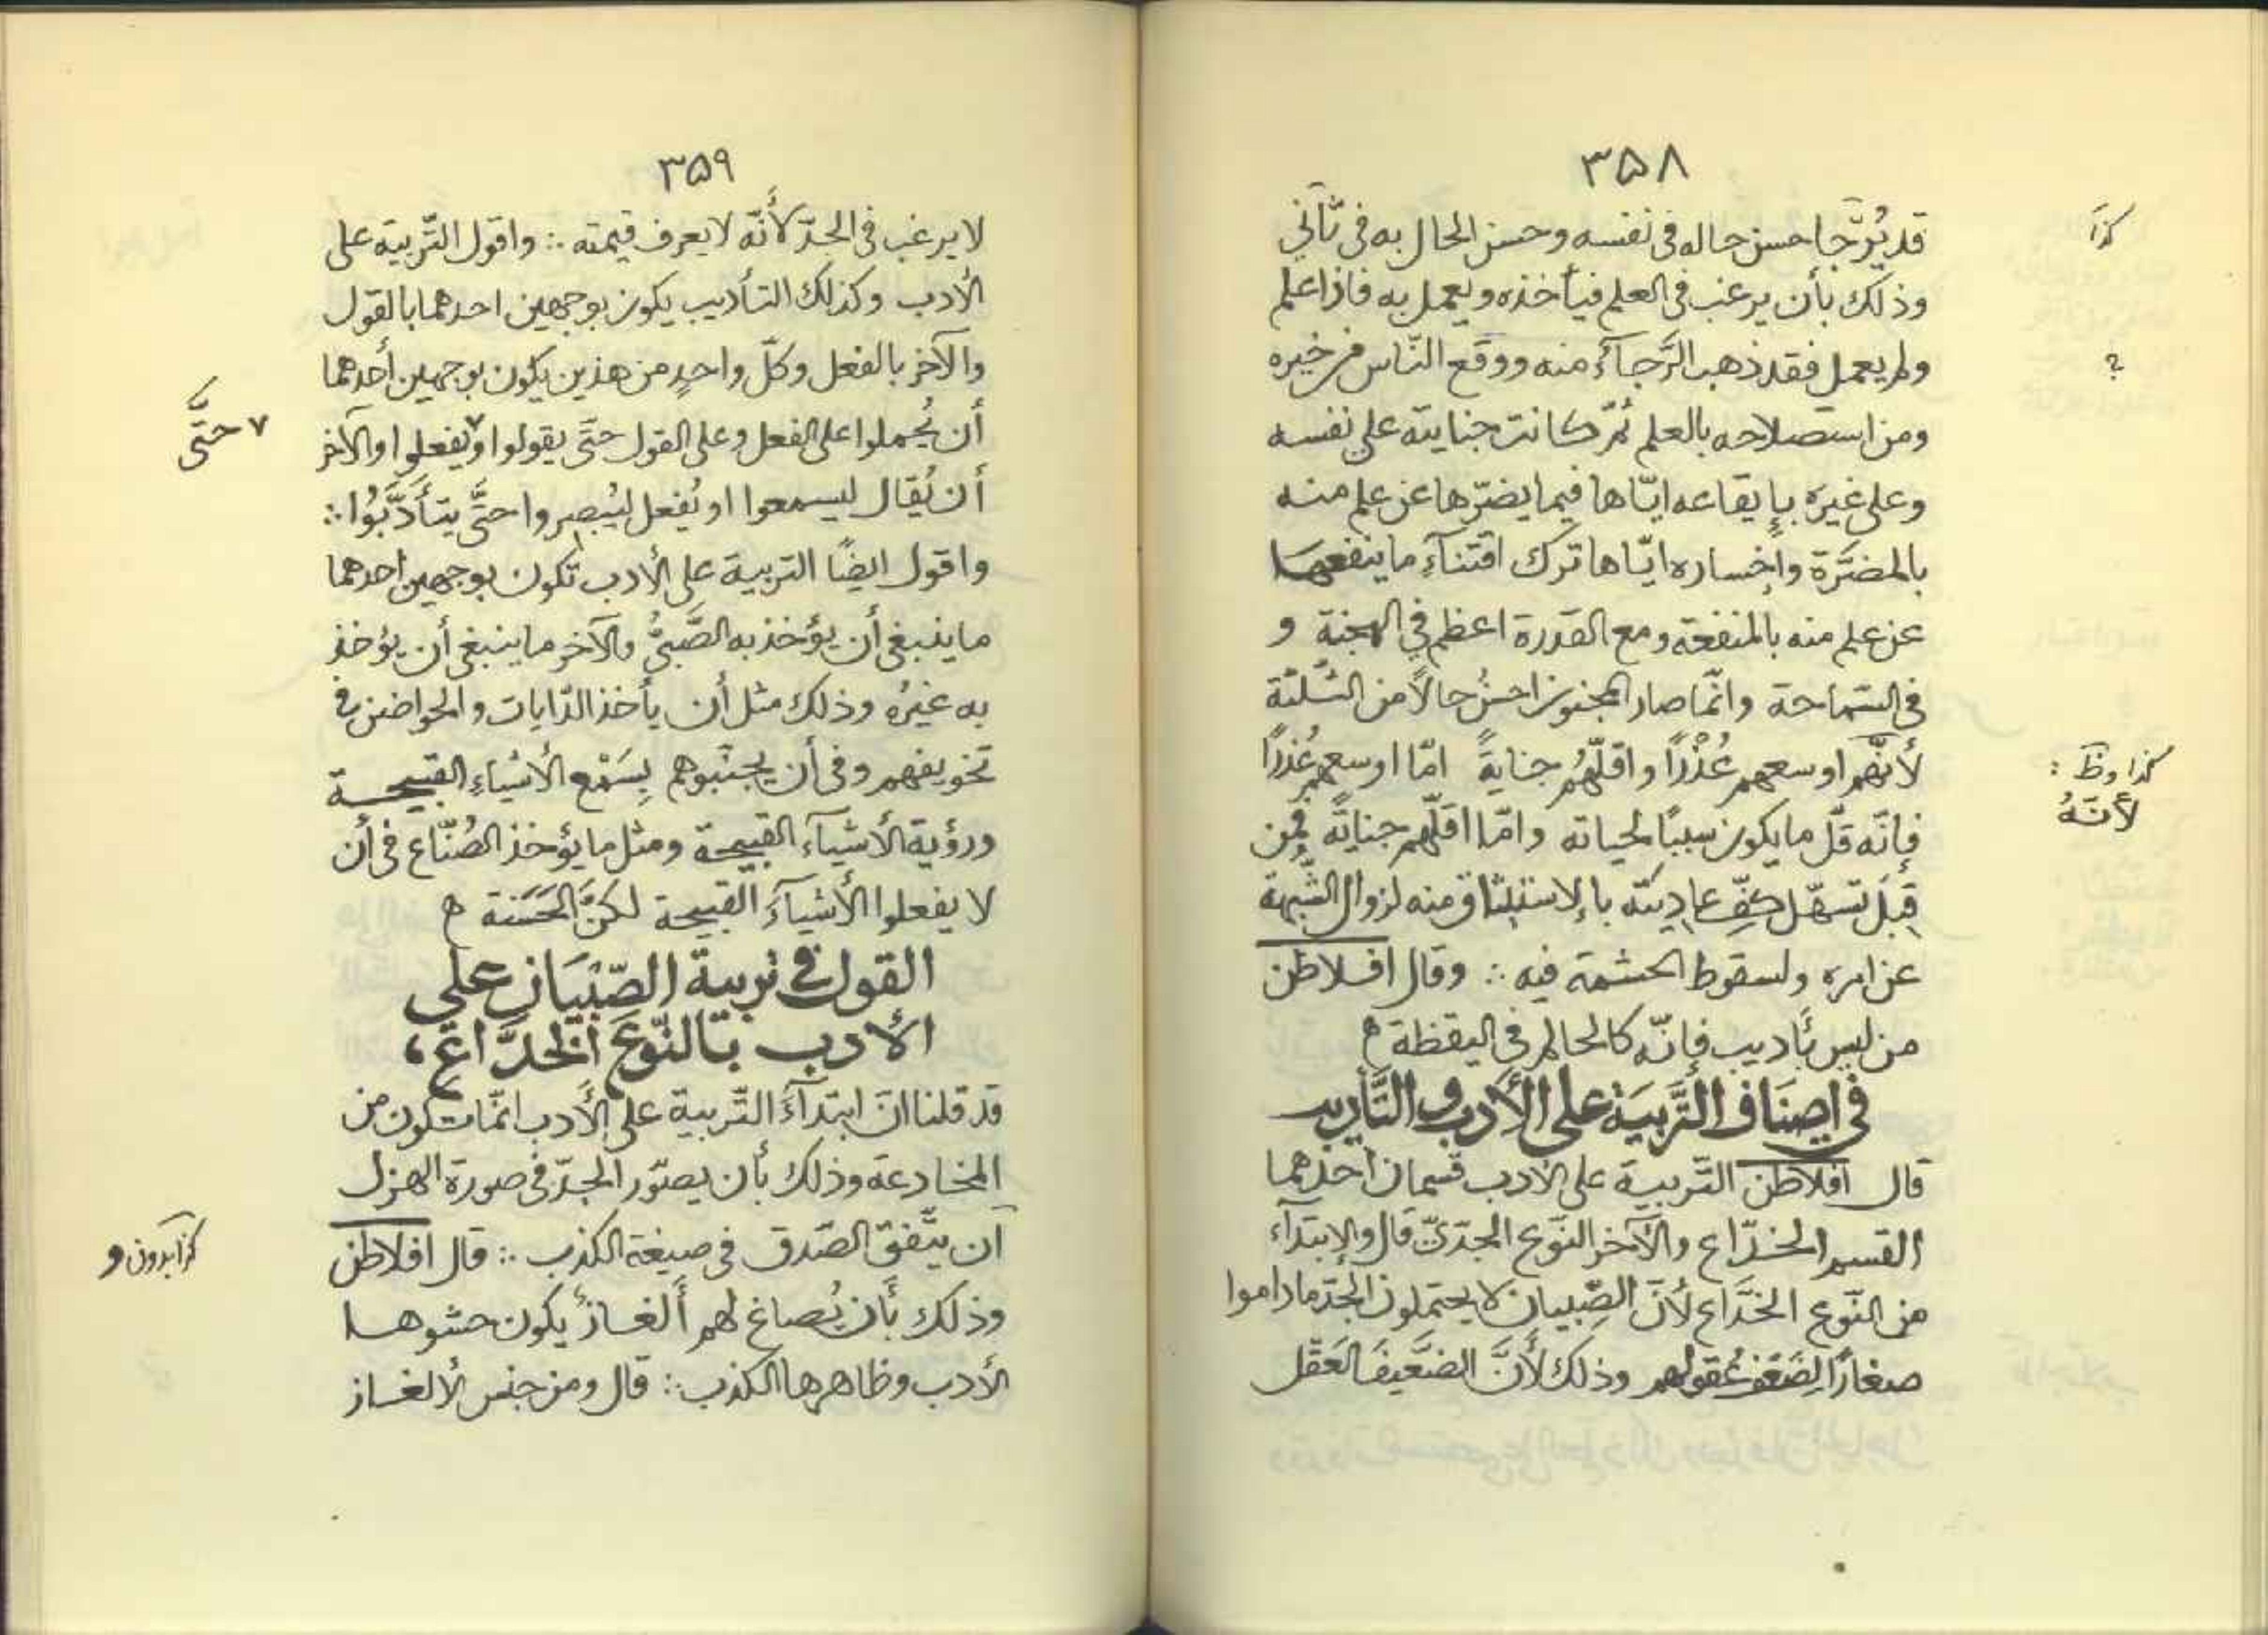 ٣۵٨
قد يُرَّجا حسن حاله في نفسه وحسن الحال به في ثاني
كذا
وذلك بأن يرغب في العلم فيأخذه ويعمل به فاذا علم
ولم يعمل فقد ذهب الرَّجآءُ منه ووقع النّاس من خيره
؟
ومن استصلاحه بالعلم ثمّ كانت جنايته على نفسه
وعلى غيره بإيقاعه ايّاها فيما يضرّها عن علم منه
بالمضرّة وإخساره ايّاها ترك اقتنآءِ ما ينفعها
عن علم منه بالمنفعة ومع القدرة اعظم في الهجنة و
في السّماحة وانّما صار المجنون احسنُ حالاً من الثّلثة
لأنّهم اوسعهم عُذْراً واقلّهُم جنايةً امّا اوسعهم عُذراً
كذا وظ :
لأنّهُ
فإنّه قلّ ما يكون سبباً لحياته وامّا اقلّهم جنايةً فمِن
قِبَل تسهّل كفّ عاديته بالإستيثاق منه لزوال الشّبهة
عن امره ولسقوط الحشمة فيه ∴ وقال افلاطن
من ليس بأديب فإنّه كالحالم في اليقظة ه
في اصنَاف التَّربيَة على الأدب والتَّأديب
قال افلاطن التّربية على الادب قسمان احدهما
القسم الخدّاع والآخر النّوع الجدّيّ قال والإبتدآء
من النّوع الخدَّاع لأنَّ الصِّبيان لا يحتملون الجدّ ما داموا
صغاراً لِضَعف عُقولهم وذلك لأنَّ الضَّعيفَ العَقل
٣۵٩
لا يرغب في الجدّ لأنّه لا يعرف قيمته ∴ واقول التّربية على
الأدب وكذلك التأديب يكون بوجهين احدهما بالقول
والآخر بالفعل وكلّ واحدٍ من هذين يكون بوجهين أحدهما
أن يُحملوا على الفعل وعلى القول حتَّى يقولوا او٧يفعلوا والآخر
٧ حتَّى
أن يُقال ليسمعوا او يُفعل ليُبصروا حتَّى يتأدَّبُوا ∴
واقول ايضًا التربية على الأدب تكون بوجهين احدهما
ما ينبغي أن يؤخذ به الصَّبيُّ والآخر ما ينبغي أن يؤخذ
به غيرُه وذلك مثل أن يأخذ الدّايات والحواضن في
تخويفهم وفي أن يجنّبوهم بِسَمْع الأشياءِ القبيحة
ورؤية الأشيآء القبيحة ومثل ما يؤخذ الصُنّاع في أن
لا يفعلوا الأشيآءَ القبيحة لكنَّ الحَسَنة ه
القول في تربية الصّبْيَان على
الأدب بالنّوع الخدَّاع،
قد قلنا انّ ابتدآءَ التّربية على الأدب انّما تكون من
المخادعة وذلك بأن يصوّر الجدّ في صورة الهزل
أن يتّفق الصّدق في صيغة الكذب ∴ قال افلاطن
كذا بدون و
وذلك بأن يُصاغ لهم ألغازٌ يكون حشوها
الأدب وظاهرها الكذب ∴ قال ومن جنس الألغاز